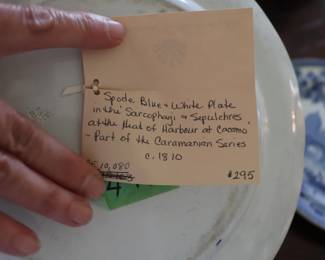 Spode Blue & White Plate
in the "Sarcophagi & Sepulchres
at the Head of Harbour at Cacamo
- Part of the Caramanian Series
c. 1810
10,080
$295